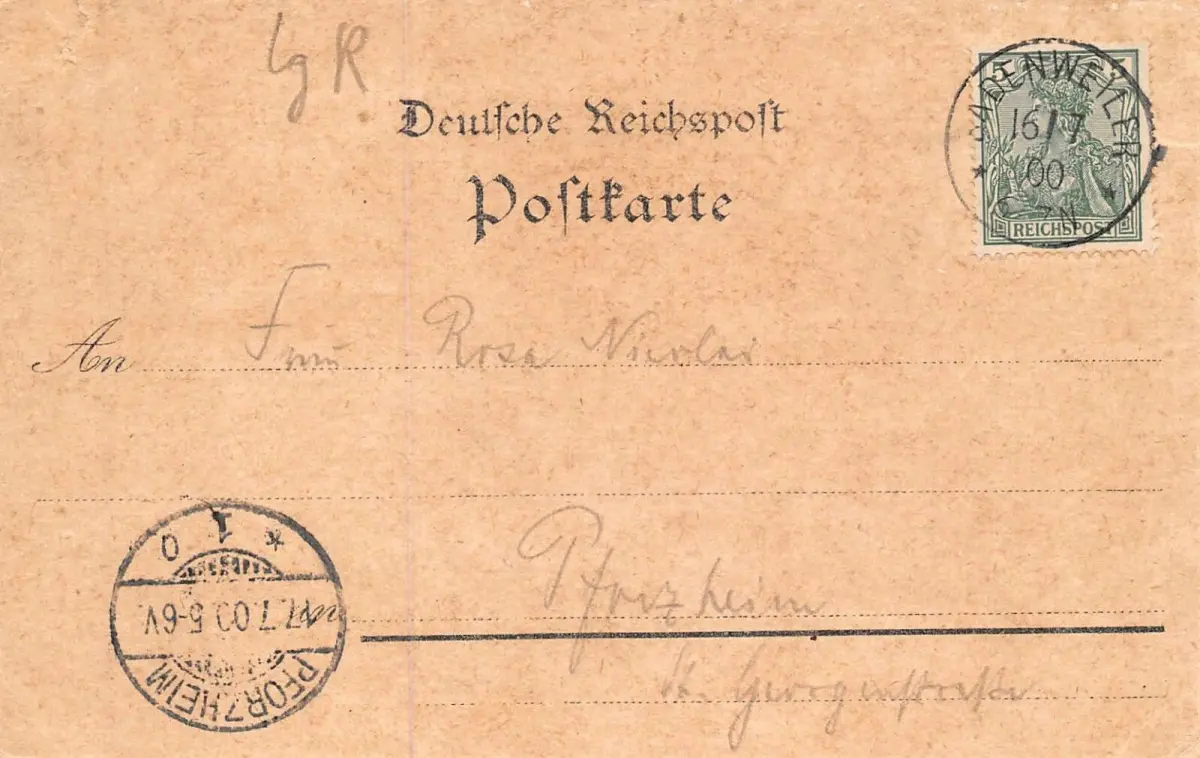 Deutsche Reichspost
Postkarte
BADENWEILER
16/7
00
REICHSPOST
An Frau Rosa Nicolai
* 1 0
17.7.00.5-6V.
PFORZHEIM
in Pforzheim
St. Georgenstraße